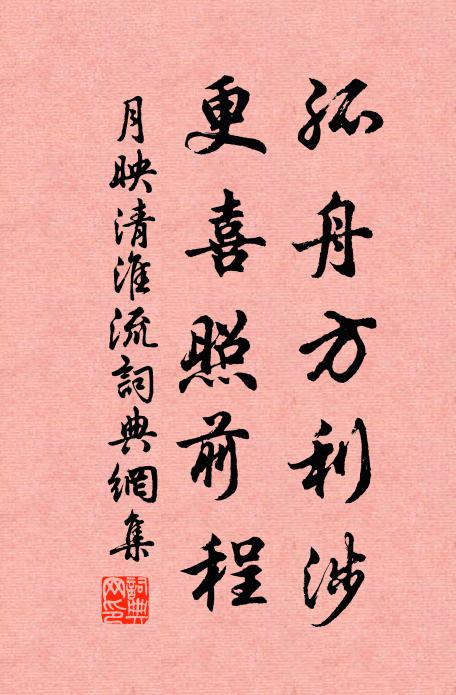 孤舟方利涉
更喜照前程
月映清淮流詞典網集
詞典網印